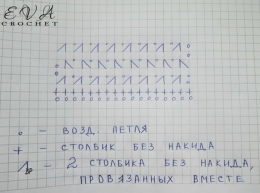 EVA
CROCHET
о – ВОЗД. ПЕТЛЯ
+ – СТОЛБИК БЕЗ НАКИДА
– 2 СТОЛБИКА БЕЗ НАКИДА,
ПРОВЯЗАННЫХ ВМЕСТЕ